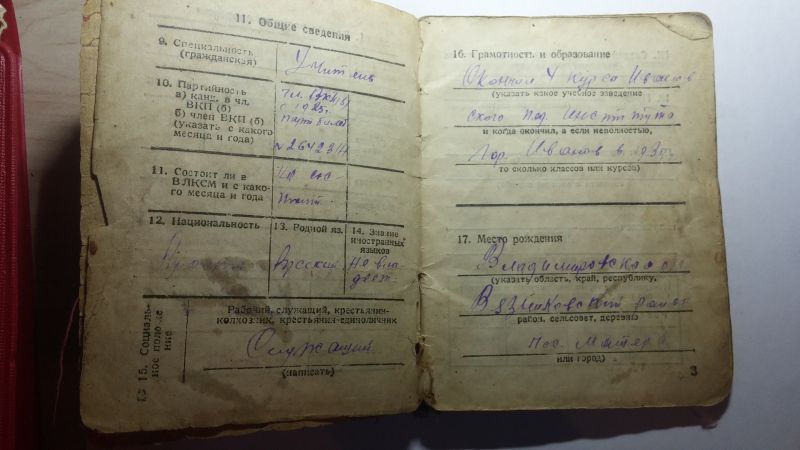 11. Общие сведения
9. Специальность
(гражданская)
Учитель
10. Партийность
а) канд. в чл.
ВКП (б)
б) член ВКП (б)
(указать с какого
месяца и года)
чл. ВКП(б)
с 1925г.
парт билет
11. Состоит ли в
ВЛКСМ и с како-
го месяца и года
не сос-
тоит.
12. Национальность
13. Родной яз.
14. Знание
иностранных
языков
Русский
Не вла-
деет.
15. Социаль-
ное положе
ние
Рабочий, служащий, крестьянин-
колхозник, крестьянин-единоличник
Служащий
(написать)
16. Грамотность и образование
Окончил 4 курса Иванов
(указать какое учебное заведение
ского Пед. Института
и когда окончил, а если неполностью,
Гор. Иванов в
то сколько классов или курсов)
17. Место рождения
Владимирская
(указать область, край, республику,
Вязниковский район
район, сельсовет, деревню
пос. Мстера
или город)
3